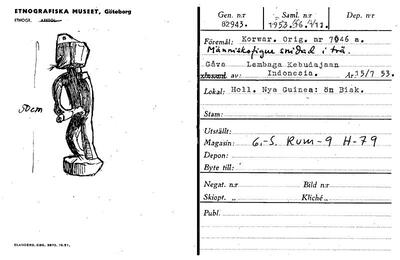 ETNOGRAFISKA MUSEET, Göteborg
ETNOGR.
50cm
ELANDERS, GBG. 3892. 10.51.
Gen. n:r
Saml. n:r
Dep. n:r
82943.
1953.26.4/12.
Föremål: Korwar. Orig. nr 7046 a.
Människofigur snidad i trä.
Gåva av: Lembaga Kebudajaan
Indonesia. År: 15/7 53.
Lokal: Holl. Nya Guinea: ön Biak.
Stam:
Utställt:
Magasin: G.-S. Rum-9 H-79
Depon:
Byte till:
Negat. n:r Bild n:r
Skiopt. „ Kliché „
Publ.